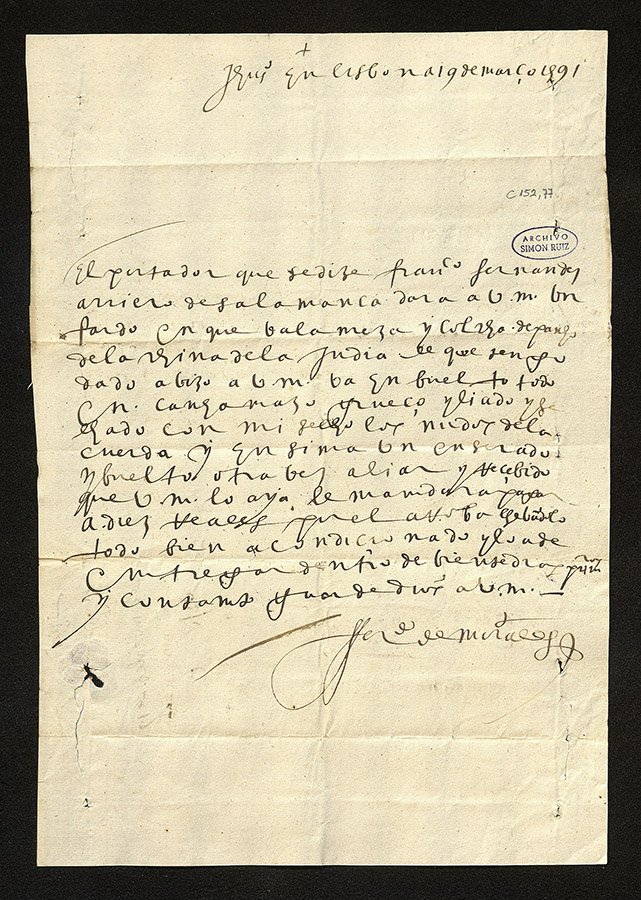 +
Jhus En Lisbona 19 de março 1591
C 152,77
ARCHIVO
SIMON RUIZ
El portador que se dize franco fernandes
arriero de salamanca dara a V. m. Un
fardo En que va la meza y colcha de
de la Reina de la Jndia de que tengo
dado abizo a V. m. va Enbuelto todo
En cangamazo grueço y liado y se
llado con mi sello los nudos de la
cuerda y Ensima Un enserado
y buelto otra bes a liar y Recebido
que V. m. lo aya le mandara pagar
a diez Reales por el arroba
todo bien acondicionado y lo a de
Entregar dentro de
y con tanto guarde dios a V. m.
fer.do de morales